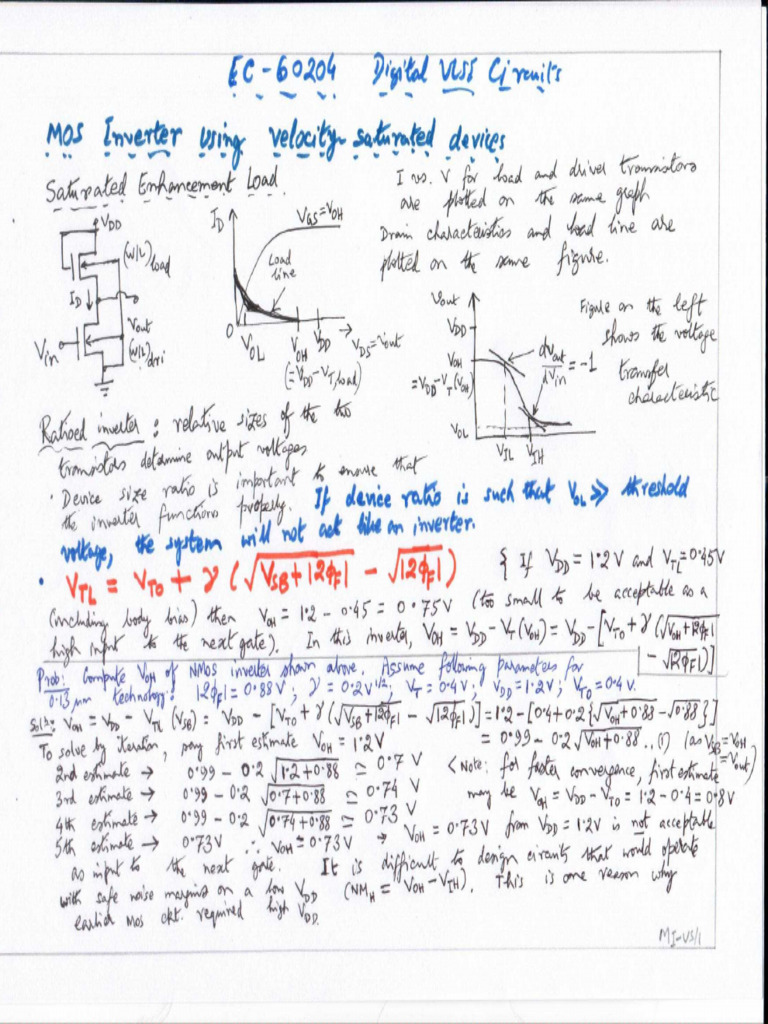 EC-60204 Digital VLSI Circuits
MOS Inverter using velocity-saturated devices
Saturated Enhancement Load
I vs. V for load and driver transistors
are plotted on the same graph
Drain characteristics and load line are
plotted on the same figure.
VDD
(W/L)load
ID
Vin
Vout
(W/L)dri
ID
VGS=VOH
Load
line
0
VOL
VOH
VDD
VDS=Vout
(=VDD-VT,load)
Vout
VDD
VOH
=VDD-VT(VOH)
VOL
VIL
VIH
dVout/dVin = -1
Figure on the left
shows the voltage
transfer
characteristic
Ratioed inverter: relative sizes of the two
transistors determine output voltages
· Device size ratio is important to ensure that
the inverter functions properly. If device ratio is such that VOL >> threshold
voltage, the system will not act like an inverter.
· VTL = VT0 + γ (√VSB+|2φF| - √|2φF|)
{ If VDD = 1.2V and VTL=0.45V
(including body bias) then VOH = 1.2 - 0.45 = 0.75V (too small to be acceptable as a
high input to the next gate). In this inverter, VOH = VDD - VT(VOH) = VDD - [VT0 + γ(√VOH+|2φF|
- √|2φF|)]
Prob: Compute VOH of NMOS inverter shown above. Assume following parameters for
0.13 μm technology: |2φF| = 0.88V; γ = 0.2V^1/2; VT = 0.4V; VDD = 1.2V; VT0 = 0.4V.
Soln: VOH = VDD - VTL (VSB) = VDD - [VT0 + γ(√VSB+|2φF| - √|2φF|)] = 1.2 - [0.4 + 0.2{√VOH+0.88 - √0.88}]
= 0.99 - 0.2√VOH+0.88 ..(1) (as VSB=VOH
=Vout)
To solve by iteration, say first estimate VOH = 1.2V
2nd estimate → 0.99 - 0.2 √1.2+0.88 ≃ 0.7 V
3rd estimate → 0.99 - 0.2 √0.7+0.88 ≃ 0.74 V
4th estimate → 0.99 - 0.2 √0.74+0.88 ≃ 0.73 V
5th estimate → 0.73V ∴ VOH ≃ 0.73V
<Note: for faster convergence, first estimate
may be VOH = VDD - VT0 = 1.2 - 0.4 = 0.8V
→ VOH = 0.73V from VDD = 1.2V is not acceptable
as input to the next gate. It is difficult to design circuits that would operate
with safe noise margins on a low VDD (NMH = VOH - VIH). This is one reason why
earlier MOS ckt. required high VDD.
MI-VS/1